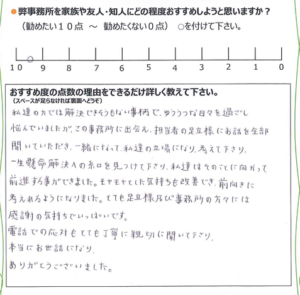 ●弊事務所を家族や友人・知人にどの程度おすすめしようと思いますか?
(勧めたい10点 ~ 勧めたくない0点) ○を付けて下さい。
10 9 8 7 6 5 4 3 2 1 0
おすすめ度の点数の理由をできるだけ詳しく教えて下さい。
(スペースが足らなければ裏面へどうぞ)
私達の力では解決できそうもない事柄で、ゆううつな日々を過ごし
悩んでいましたが、この事務所に出会え、担当者の足立様にお話を全部
聞いていただき、一緒になって、私達の立場になり、考えて下さり、
一生懸命解決への糸口を見つけて下さり、私達はそのことに向かって
前進する事ができました。モヤモヤとした気持ちも改善でき、前向きに
考えれるようになりました。とても足立様及び事務所の方々には
感謝の気持ちでいっぱいです。
電話での応対もとても丁寧に親切に聞いて下さり、
本当にお世話になり
ありがとうございました。